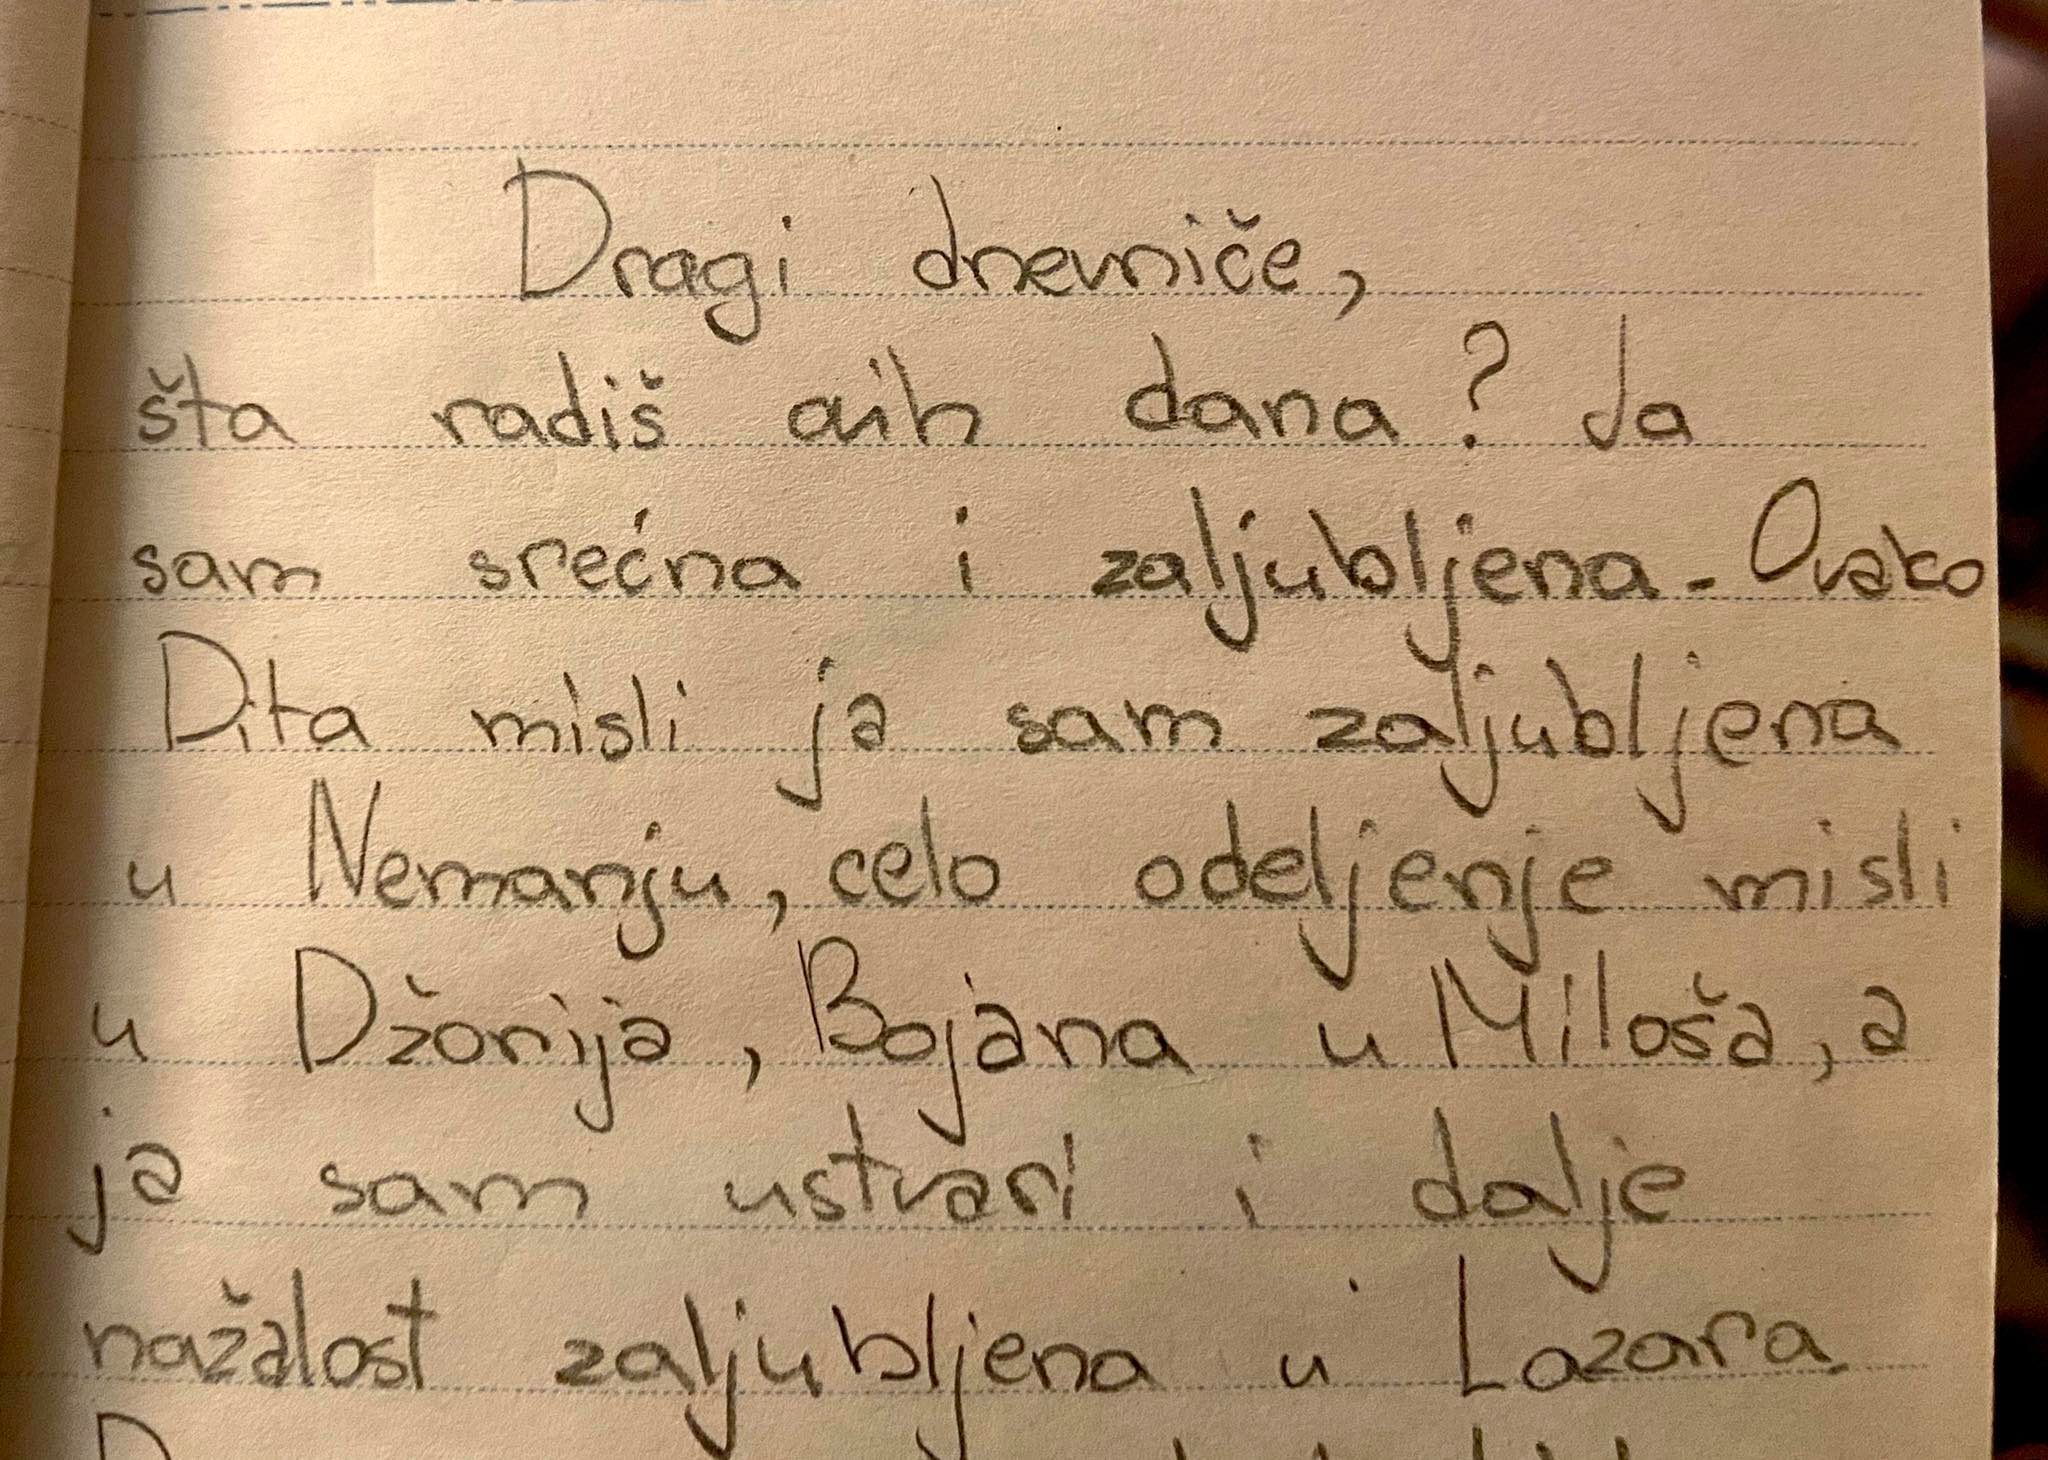 Dragi dnevniče,
šta radiš ovih dana? Ja
sam srećna i zaljubljena. Ovako
Dita misli ja sam zaljubljena
u Nemanju, celo odeljenje misli
u Džonija, Bojana u Miloša, a
ja sam ustvari i dalje
nažalost zaljubljena u Lazara.